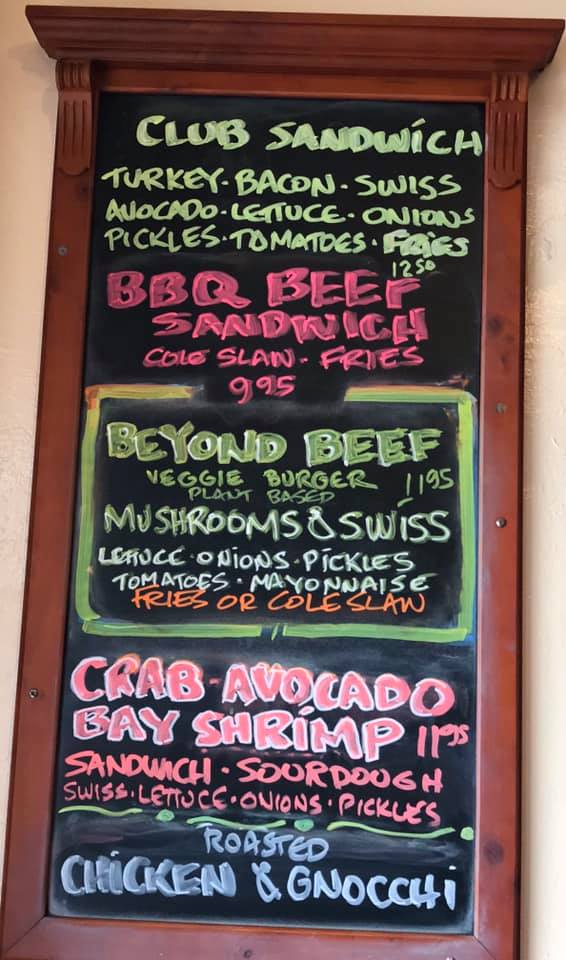 CLUB SANDWICH
TURKEY · BACON · SWISS
AVOCADO · LETTUCE · ONIONS
PICKLES · TOMATOES · FRIES
12 50
BBQ BEEF
SANDWICH
COLE SLAW · FRIES
9 95
BEYOND BEEF
VEGGIE BURGER 11 95
PLANT BASED
MUSHROOMS & SWISS
LETTUCE · ONIONS · PICKLES
TOMATOES · MAYONNAISE
FRIES OR COLE SLAW
CRAB · AVOCADO
BAY SHRIMP 11 95
SANDWICH · SOURDOUGH
SWISS · LETTUCE · ONIONS · PICKLES
ROASTED
CHICKEN & GNOCCHI